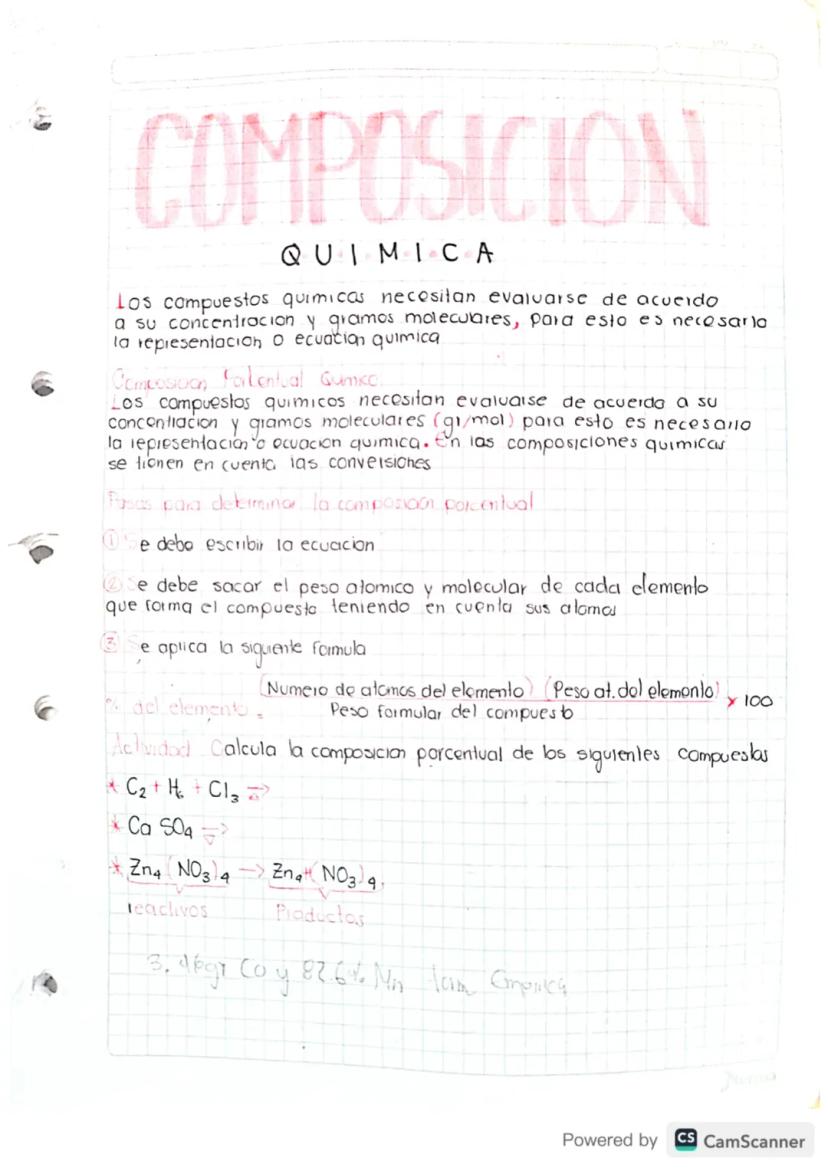 COMPOSICION
QUIMICA
Los compuestos quimicos necesitan evaluarse de acuerdo
a su concentracion y gramos moleculares, para esto es necesaria
la representacion o ecuacion quimica
Composicion Porcentual Quimica
Los compuestos quimicos necesitan evaluarse de acuerdo a su
concentracion y gramos moleculares (gr/mol) para esto es necesario
la representacion o ecuacion quimica. En las composiciones quimicas
se tienen en cuenta las conversiones
Pasos para determinar la composicion porcentual
① Se debe escribir la ecuacion
② Se debe sacar el peso atomico y molecular de cada elemento
que forma el compuesto teniendo en cuenta sus atomos
③ Se aplica la siguiente formula
(Numero de atomos del elemento) (Peso at. del elemento) x 100
% del elemento =
Peso formular del compuesto
Actividad Calcula la composicion porcentual de los siguientes compuestos
* C₂ + H₆ + Cl₃ →
* Ca SO₄ →
* Zn₄ (NO₃)₄ → Zn₄ + (NO₃)₄.
reactivos Productos
3. gr Co y 82.6% Mn
Norma
Powered by CS CamScanner